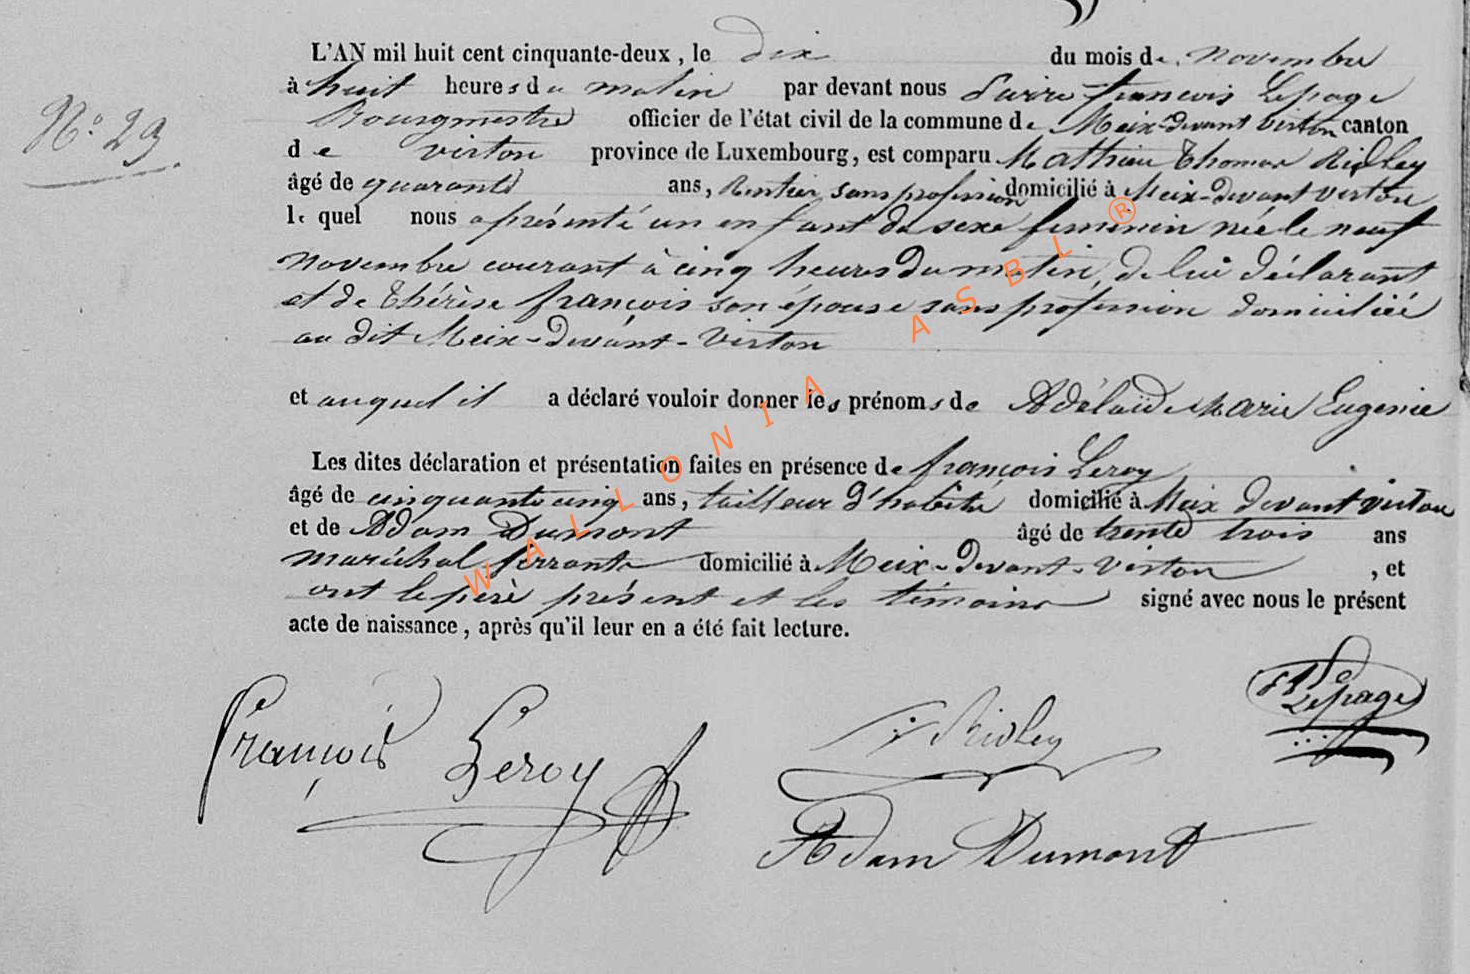 L'AN mil huit cent cinquante-deux, le dix du mois de novembre
à huit heures du matin par devant nous Pierre françois Lepage
Bourgmestre officier de l'état civil de la commune de Meix-devant Virton canton
de virton province de Luxembourg, est comparu Mathieu Thomas Ridley
âgé de quarante ans, Rentier sans profession domicilié à Meix-devant virton
le quel nous a présenté un enfant du sexe feminin née le neuf
novembre courant à cinq heures du matin, de lui déclarant
et de Thérèse françois son épouse sans profession domiciliée
au dit Meix-devant-Virton
et auquel il a déclaré vouloir donner les prénoms de Adélaïde Marie Eugenie
Les dites déclaration et présentation faites en présence de françois Leroy
âgé de cinquante cinq ans, tailleur d'habits domicilié à Meix devant virton
et de Adam Dumont âgé de trente trois ans
maréchal ferrant domicilié à Meix-devant-virton, et
ont le père présent et les témoins signé avec nous le présent
acte de naissance, après qu'il leur en a été fait lecture.
N° 23.
WALLONIA ASBL ®
François Leroy
Ridley
Lepage
Adam Dumont